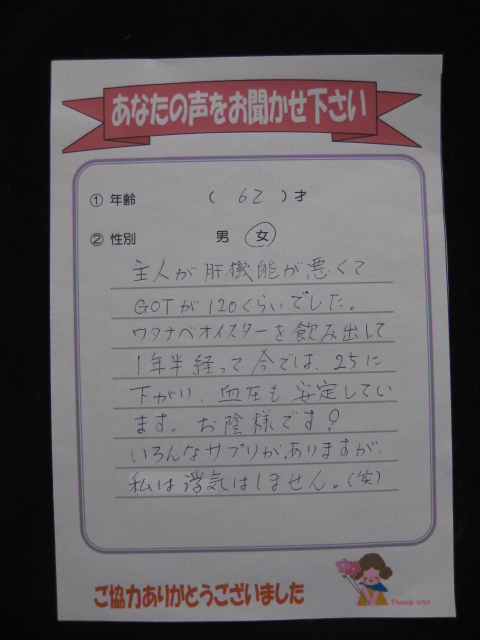 あなたの声をお聞かせ下さい
① 年齢 ( 62 )才
② 性別 男 女
主人が肝機能が悪くて
GOTが120くらいでした。
ワタナベオイスターを飲み出して
1年半経って今では、25に
下がり、血圧も安定してい
ます。お陰様です!
いろんなサプリがありますが、
私は浮気はしません。(笑)
ご協力ありがとうございました
Thank you!